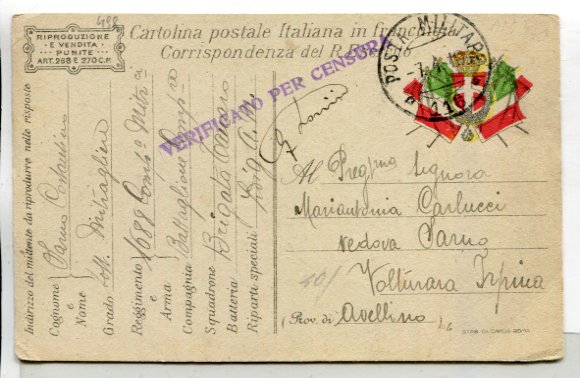 498
RIPRODUZIONE
E VENDITA
PUNITE
ART. 268 E 270 C.P.
Cartolina postale Italiana in franchigia
Corrispondenza del R. Esercito
VERIFICATO PER CENSURA
POSTA MILITARE
110
Indirizzo del mittente da riprodurre nelle risposte
Cognome
e
Nome
Grado Sold. Mitragliere
Reggimento 1088 Comp.a Mitr.ci
e
Arma
Compagnia
Squadrone Brigata
Batteria
Riparti speciali
Al Preg/ma Signora
Mariantonia Carlucci
Vedova Sarno
Volturara Irpina
(Prov. di Avellino)
STAB. DI CARLO-ROMA